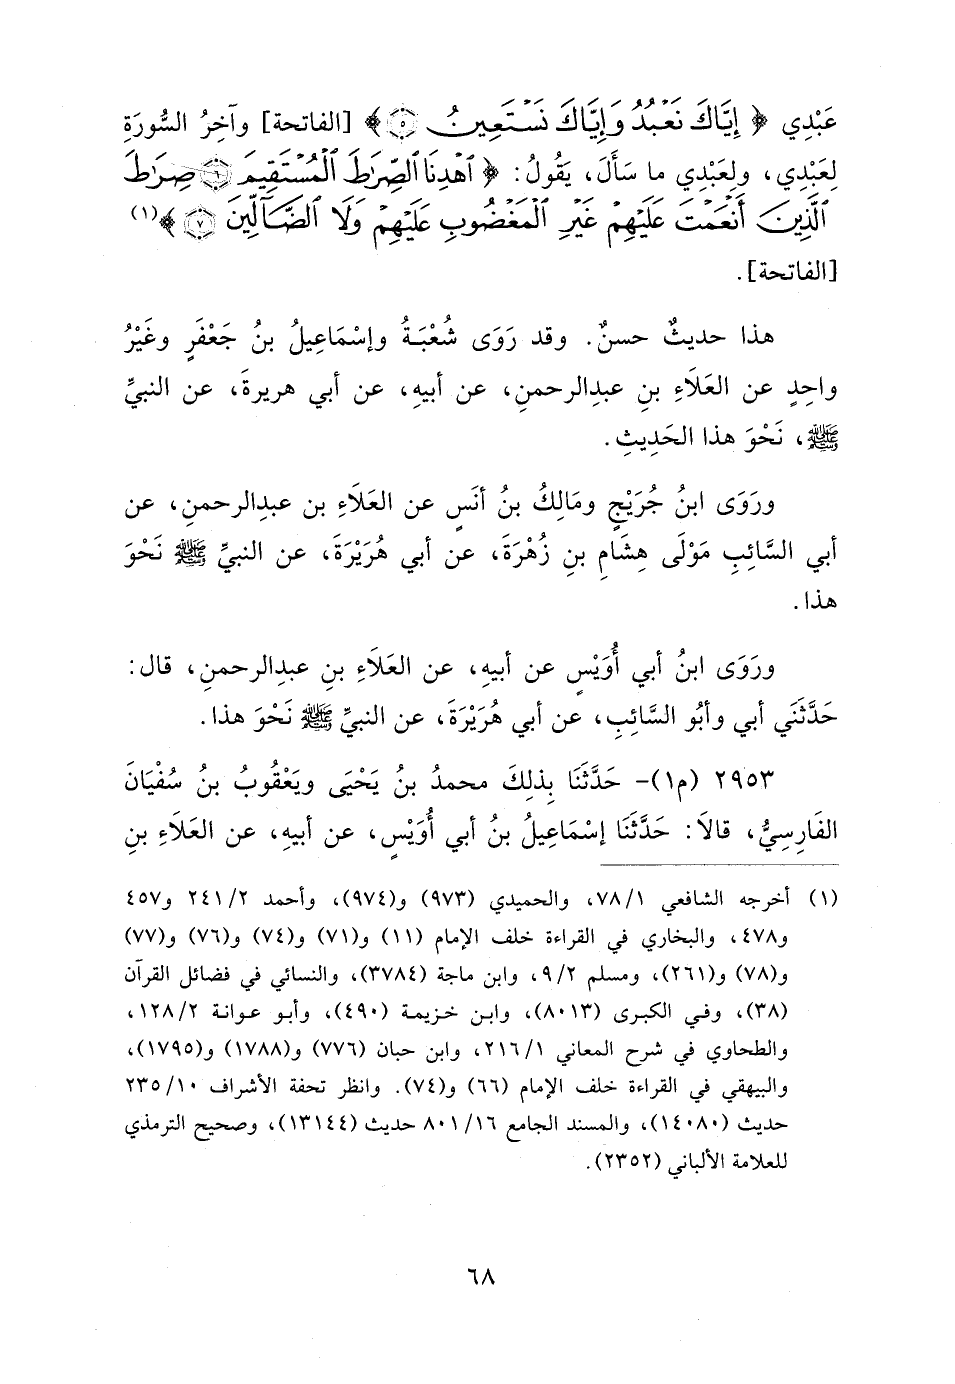 عَبْدِي ﴿ إِيَّاكَ نَعْبُدُ وَإِيَّاكَ نَسْتَعِينُ ۝٥ ﴾ [الفاتحة] وآخِرُ السُّورَةِ
لِعَبْدِي، ولِعَبْدِي ما سَأَلَ، يَقُولُ: ﴿ ٱهْدِنَا ٱلصِّرَٰطَ ٱلْمُسْتَقِيمَ ۝٦ صِرَٰطَ
ٱلَّذِينَ أَنْعَمْتَ عَلَيْهِمْ غَيْرِ ٱلْمَغْضُوبِ عَلَيْهِمْ وَلَا ٱلضَّآلِّينَ ۝٧ ﴾(١)
[الفاتحة].
هذا حديثٌ حسنٌ. وقد رَوَى شُعْبَةُ وإسْمَاعِيلُ بنُ جَعْفَرٍ وغَيْرُ
واحِدٍ عن العَلَاءِ بنِ عبدِالرحمنِ، عن أبيهِ، عن أبي هريرةَ، عن النبيِّ
ﷺ، نَحْوَ هذا الحَدِيثِ.
ورَوَى ابنُ جُرَيْجٍ ومَالِكُ بنُ أنَسٍ عن العَلَاءِ بن عبدِالرحمنِ، عن
أبي السَّائِبِ مَوْلَى هِشَامِ بنِ زُهْرَةَ، عن أبي هُرَيْرَةَ، عن النبيِّ ﷺ نَحْوَ
هذا.
ورَوَى ابنُ أبي أُوَيْسٍ عن أبيه، عن العَلَاءِ بنِ عبدِالرحمنِ، قال:
حَدَّثَنَي أبي وأبُو السَّائِبِ، عن أبي هُرَيْرَةَ، عن النبيِّ ﷺ نَحْوَ هذا.
٢٩٥٣ (م١)- حَدَّثَنَا بِذلِكَ محمدُ بنُ يَحْيَى ويَعْقُوبُ بنُ سُفْيَانَ
الفَارِسِيُّ، قالاَ: حَدَّثَنَا إسْمَاعِيلُ بنُ أبي أُوَيْسٍ، عن أبيهِ، عن العَلَاءِ بنِ
(١) أخرجه الشافعي ٧٨/١، والحميدي (٩٧٣) و(٩٧٤)، وأحمد ٢٤١/٢ و٤٥٧
و٤٧٨، والبخاري في القراءة خلف الإمام (١١) و(٧١) و(٧٤) و(٧٦) و(٧٧)
و(٧٨) و(٢٦١)، ومسلم ٩/٢، وابن ماجة (٣٧٨٤)، والنسائي في فضائل القرآن
(٣٨)، وفي الكبرى (٨٠١٣)، وابن خزيمة (٤٩٠)، وأبو عوانة ١٢٨/٢،
والطحاوي في شرح المعاني ٢١٦/١، وابن حبان (٧٧٦) و(١٧٨٨) و(١٧٩٥)،
والبيهقي في القراءة خلف الإمام (٦٦) و(٧٤). وانظر تحفة الأشراف ٢٣٥/١٠
حديث (١٤٠٨٠)، والمسند الجامع ٨٠١/١٦ حديث (١٣١٤٤)، وصحيح الترمذي
للعلامة الألباني (٢٣٥٢).
٦٨